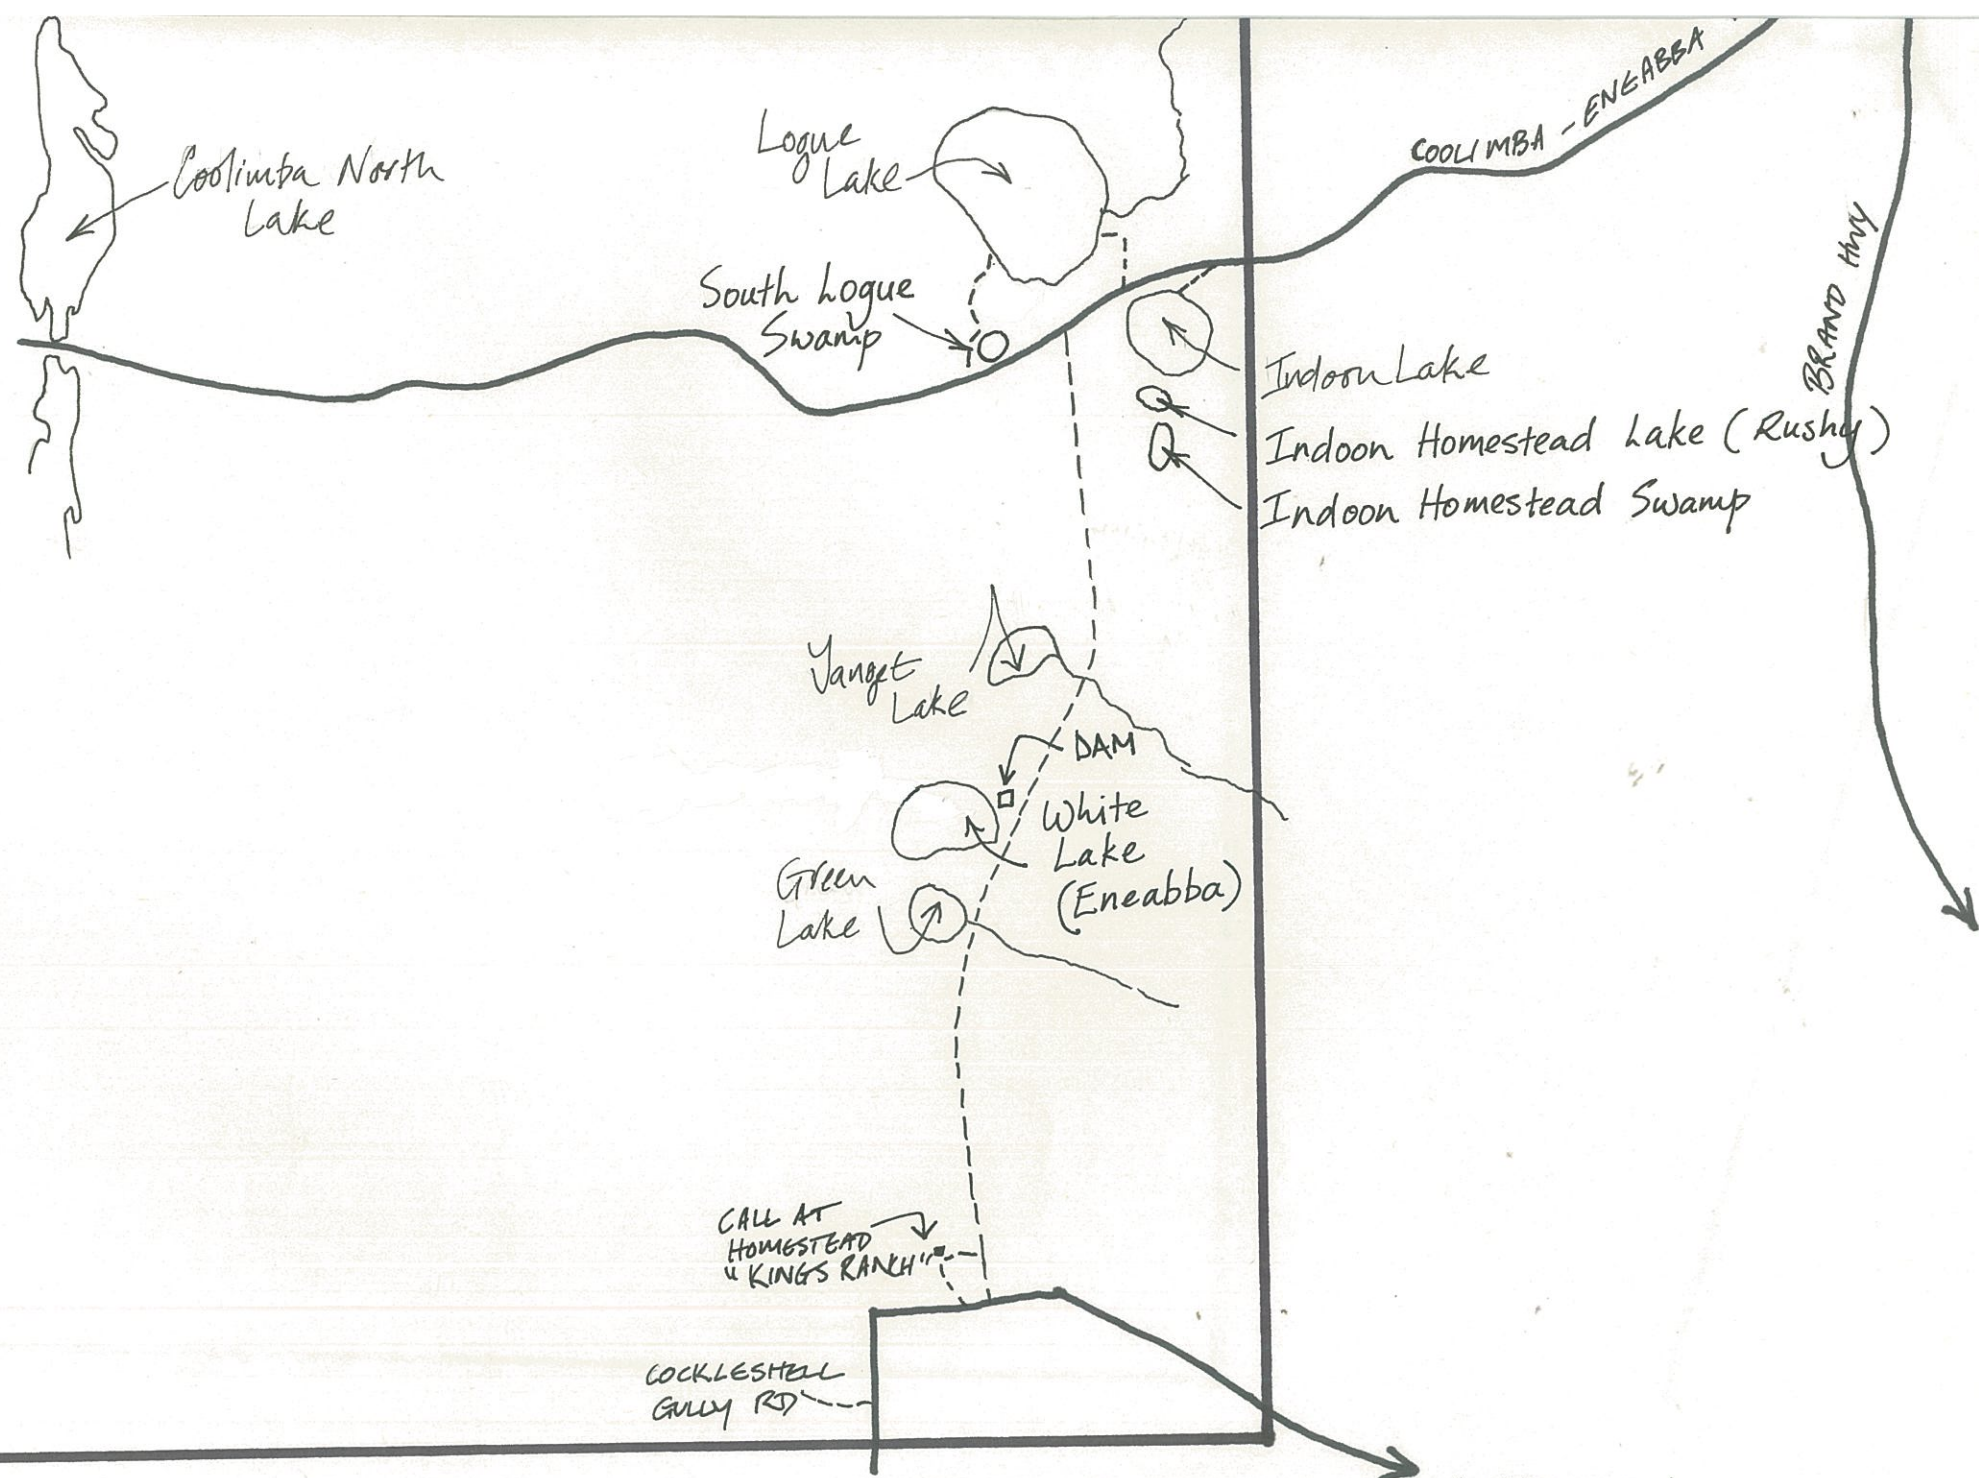 COOLIMBA - ENEABBA
Logue
Lake
Coolimba North
Lake
BRAND HWY
South Logue
Swamp
Indoon Lake
Indoon Homestead Lake (Rushy)
Indoon Homestead Swamp
Yanget
Lake
DAM
White
Lake
(Eneabba)
Green
Lake
CALL AT
HOMESTEAD
"KINGS RANCH"
COCKLESHELL
GULLY RD